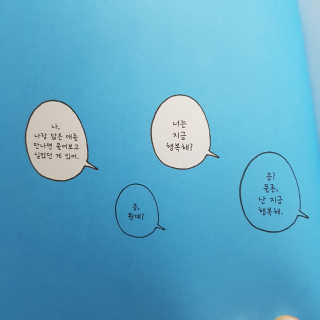 나,
나랑 닮은 애를
만나면 물어보고
싶었던 게 있어.
응,
뭔데?
너는
지금
행복해?
응!
물론,
난 지금
행복해.